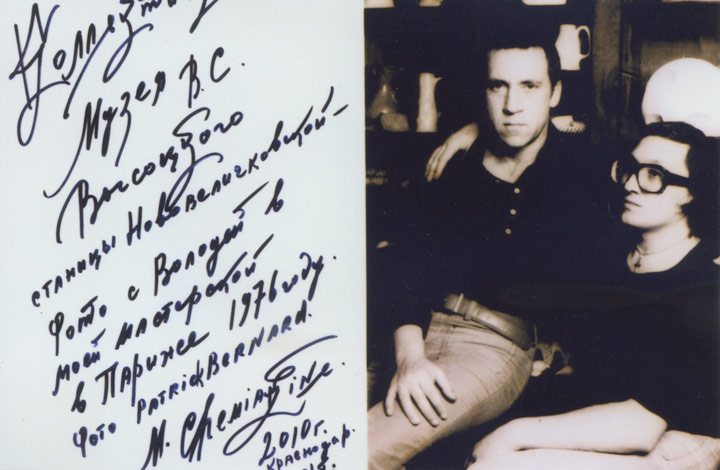 Коллективу
Музея В.С.
Высоцкого
станицы Нововеличковской-
Фото с Володей в
моей мастерской
в Париже 1976 году.
Фото PATRICK BERNARD.
M. Chemiakine.
2010 г.
Краснодар.